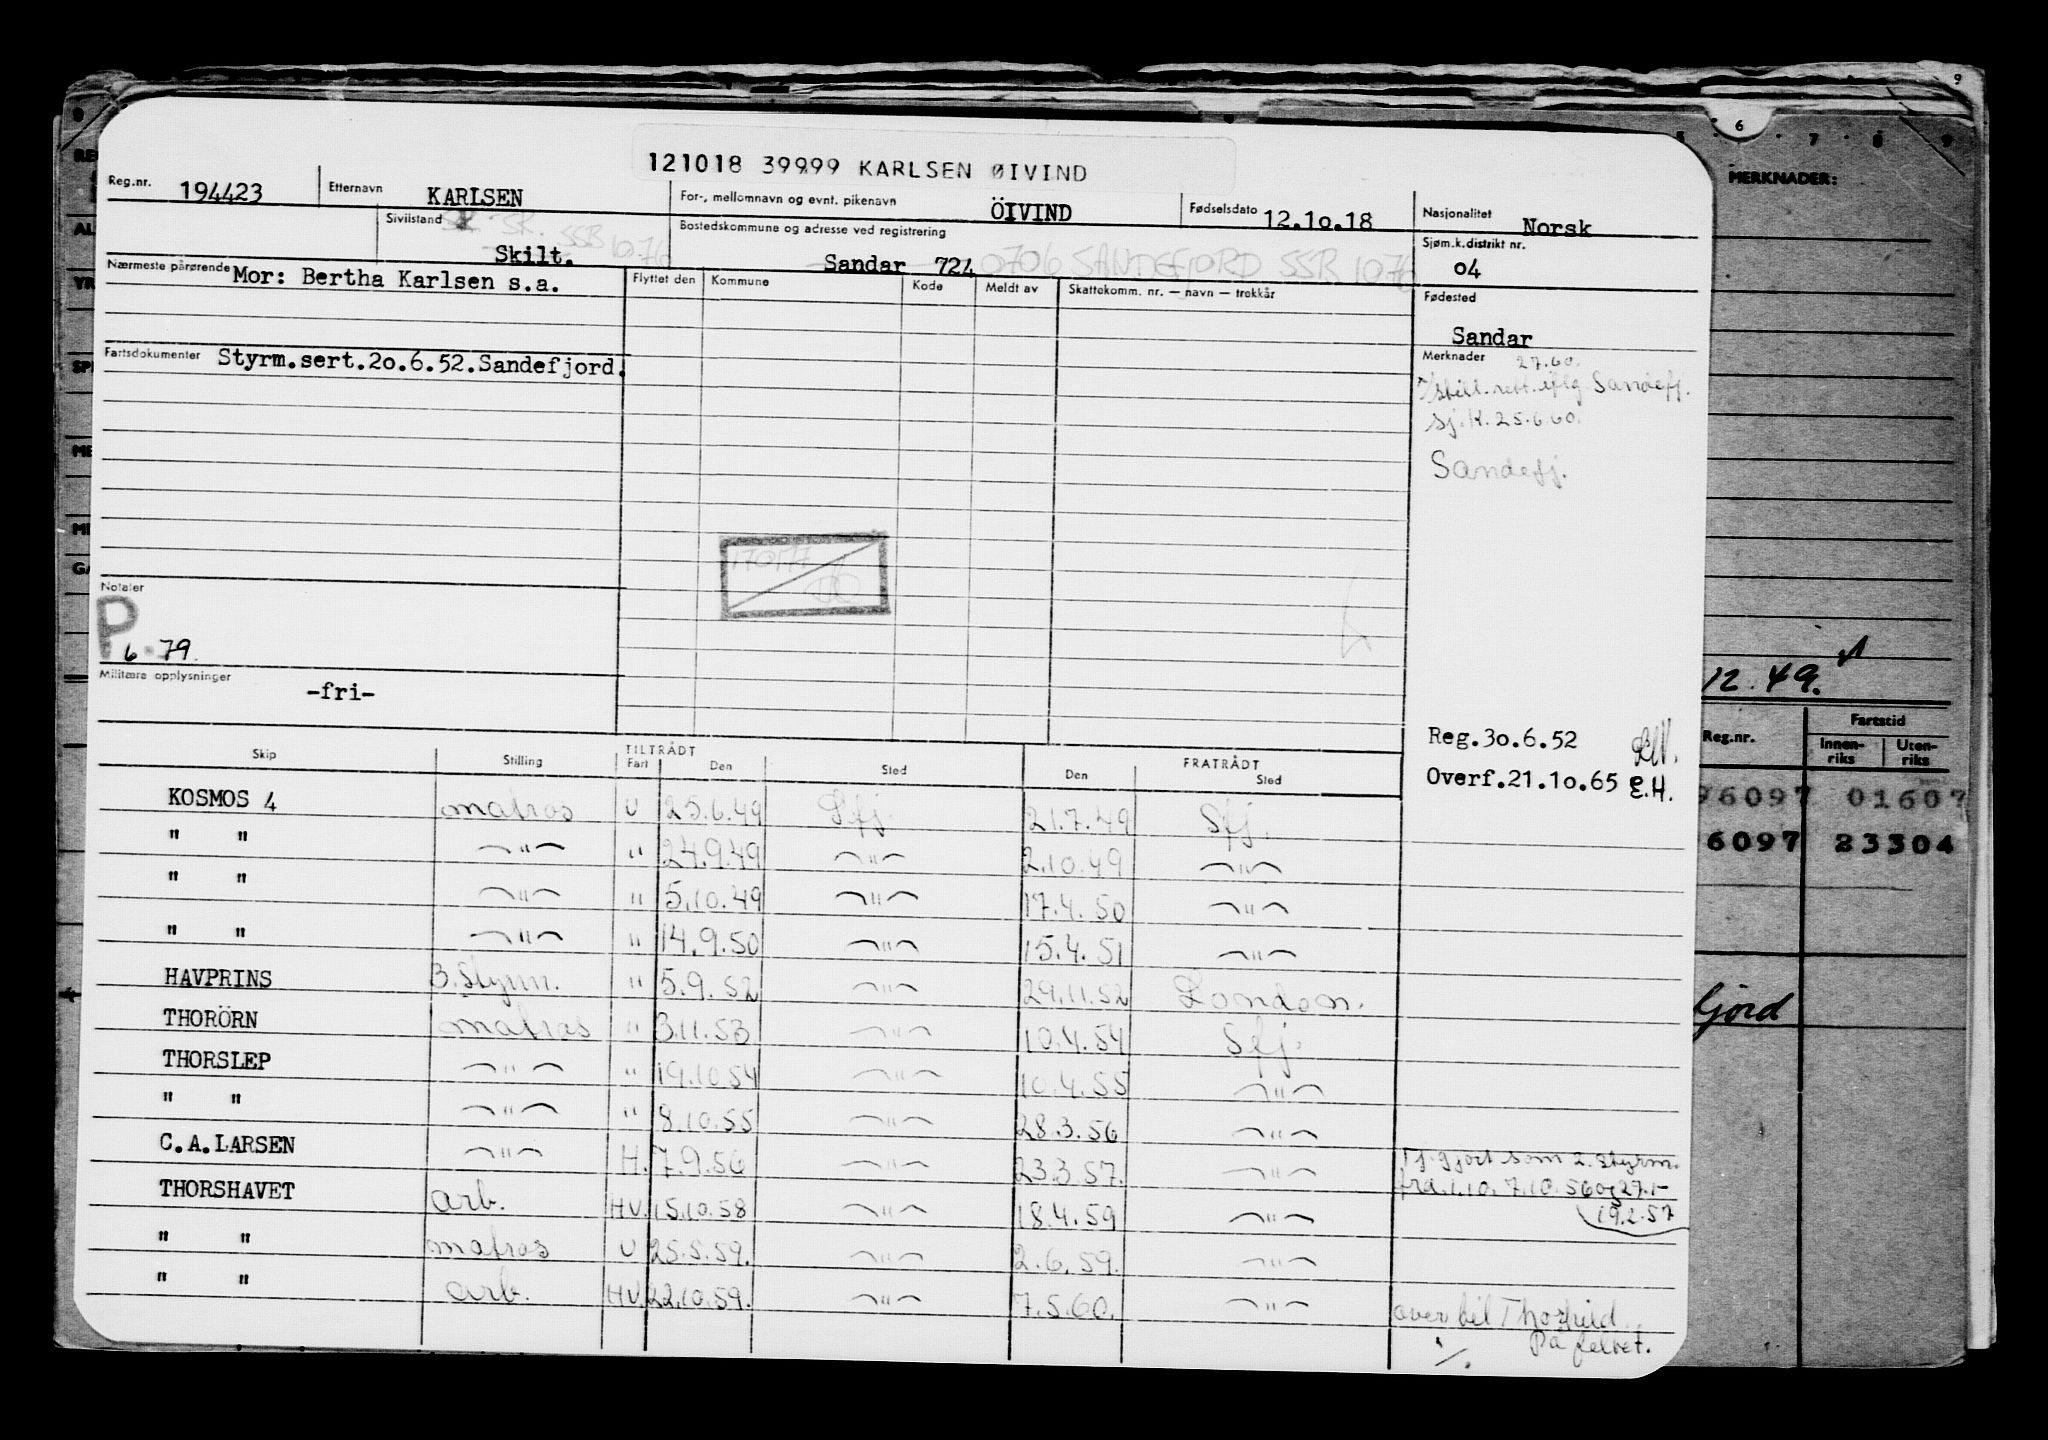 121018 39999 KARLSEN ØIVIND
Reg.nr. 194423 Etternavn KARLSEN For-, mellomnavn og evnt. pikenavn ÖIVIND Fødselsdato 12.1o.18 Nasjonalitet Norsk
Sivilstand Skilt. SK. SSB 10.76 Bostedskommune og adresse ved registrering Sandar 724 0706 SANDEFJORD SSB 10.76 Sjøm.k.distrikt nr. o4
Nærmeste pårørende Mor: Bertha Karlsen s.a. Flyttet den Kommune Kode Meldt av Skattekomm. nr. — navn — trekkår Fødested
Sandar
Fartsdokumenter Styrm.sert.2o.6.52.Sandefjord. Merknader 27.60.
Still. rett. iflg Sandefj.
Sj.K. 25.6.60.
Sandefj.
170177
Notater
P
6 79.
Militære opplysninger -fri-
Reg.3o.6.52
Overf.21.1o.65 E.H.
TILTRÅDT FRATRÅDT
Skip Stilling Fart Den Sted Den Sted
KOSMOS 4 matros U 25.6.49 Sfj. 21.7.49 Sfj.
" " —"— " 24.9.49 —"— 2.10.49 —"—
" " —"— " 5.10.49 —"— 17.4.50 —"—
" " —"— " 14.9.50 —"— 15.4.51 —"—
HAVPRINS 3.Styrm. " 5.9.52 —"— 29.11.52 London.
THORÖRN matros " 3.11.53 —"— 10.4.54 Sfj.
THORSLEP —"— " 19.10.54 —"— 10.4.55 —"—
" " —"— " 8.10.55 —"— 28.3.56 —"—
C.A.LARSEN —"— H. 7.9.56 —"— 23.3.57. —"— Tj.gjort som 2. styrm.
fra.1.10. 7.10.56 og 27.1-
19.2.57
THORSHAVET arb. HV. 15.10.58 —"— 18.4.59 —"—
" " matros U 25.5.59. —"— 2.6.59. —"—
" " arb. HV. 22.10.59. —"— 7.5.60. —"— over til Thorshild
På feltet.
%.
5 6 7 8 9
MERKNADER:
12.49.
Reg.nr. Fartstid
Innen-riks Uten-riks
96097 01607
6097 23304
fjord